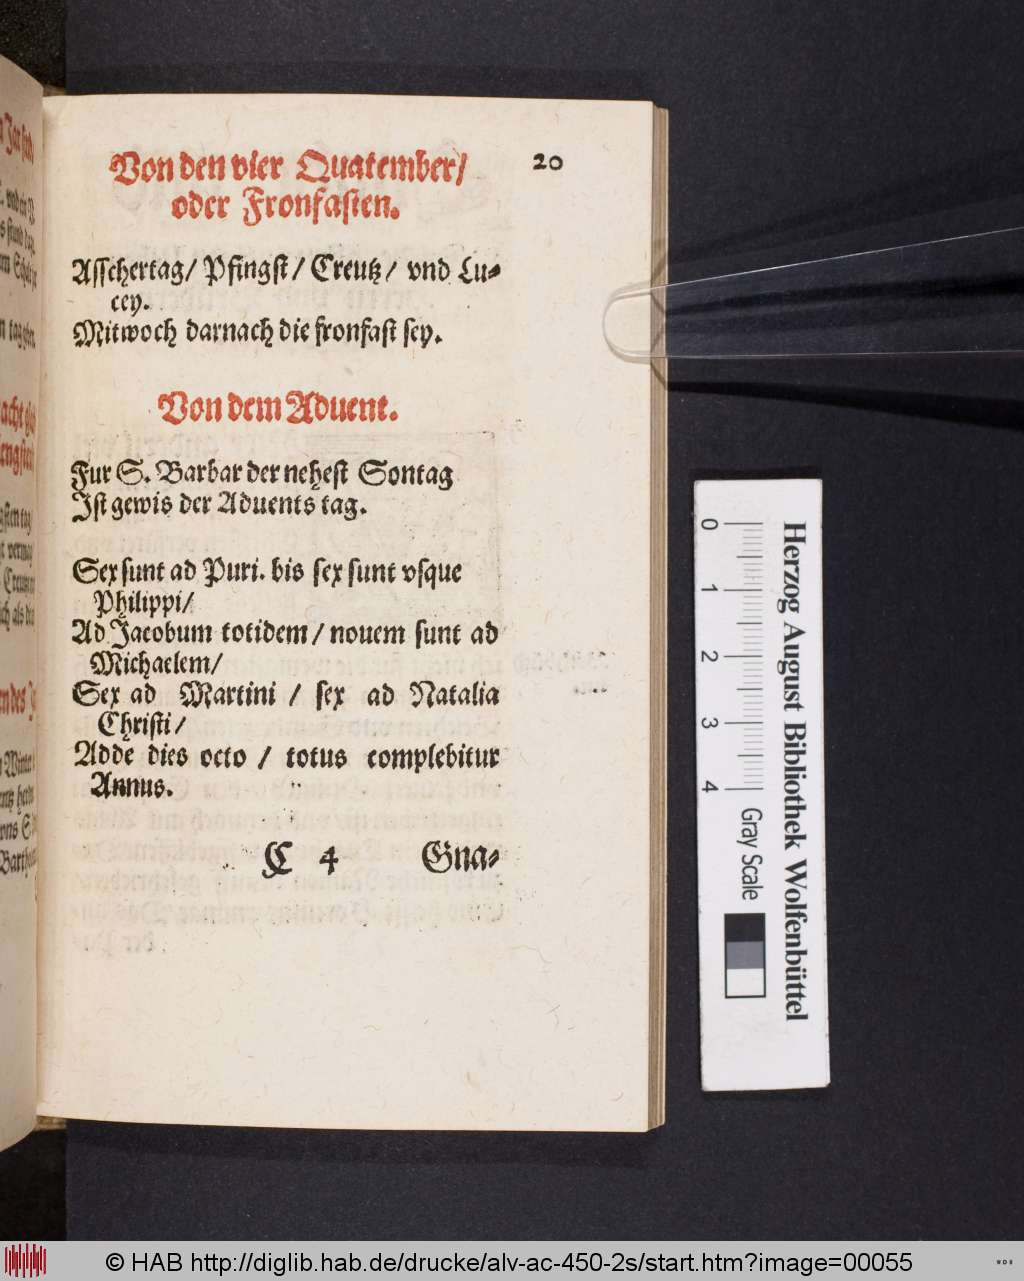 20
Von den vier Quatember/
oder Fronfasten.
Asschertag/ Pfingst/ Creutz/ vnd Lu-
cey.
Mitwoch darnach die fronfast sey.
Von dem Aduent.
Fur S. Barbar der nehest Sontag
Ist gewis der Aduents tag.
Sex sunt ad Puri. bis sex sunt vsque
Philippi/
Ad Jacobum totidem/ nouem sunt ad
Michaelem/
Sex ad Martini / sex ad Natalia
Christi/
Adde dies octo / totus complebitur
Annus.
C 4 Gna-
0 1 2 3 4 Gray Scale
Herzog August Bibliothek Wolfenbüttel
© HAB http://diglib.hab.de/drucke/alv-ac-450-2s/start.htm?image=00055